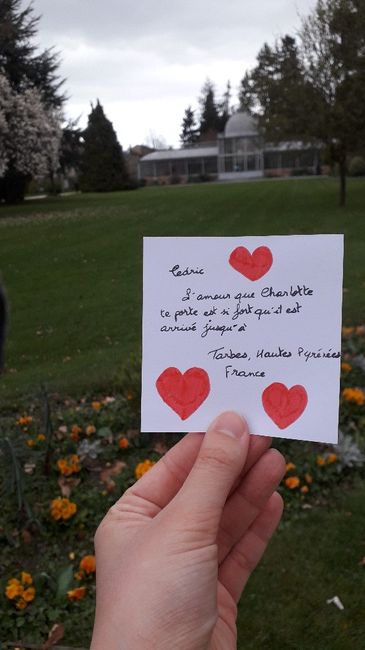 Cedric
L'amour que Charlotte
te porte est si fort qu'il est
arrivé jusqu'à
Tarbes, Hautes Pyrénées
France